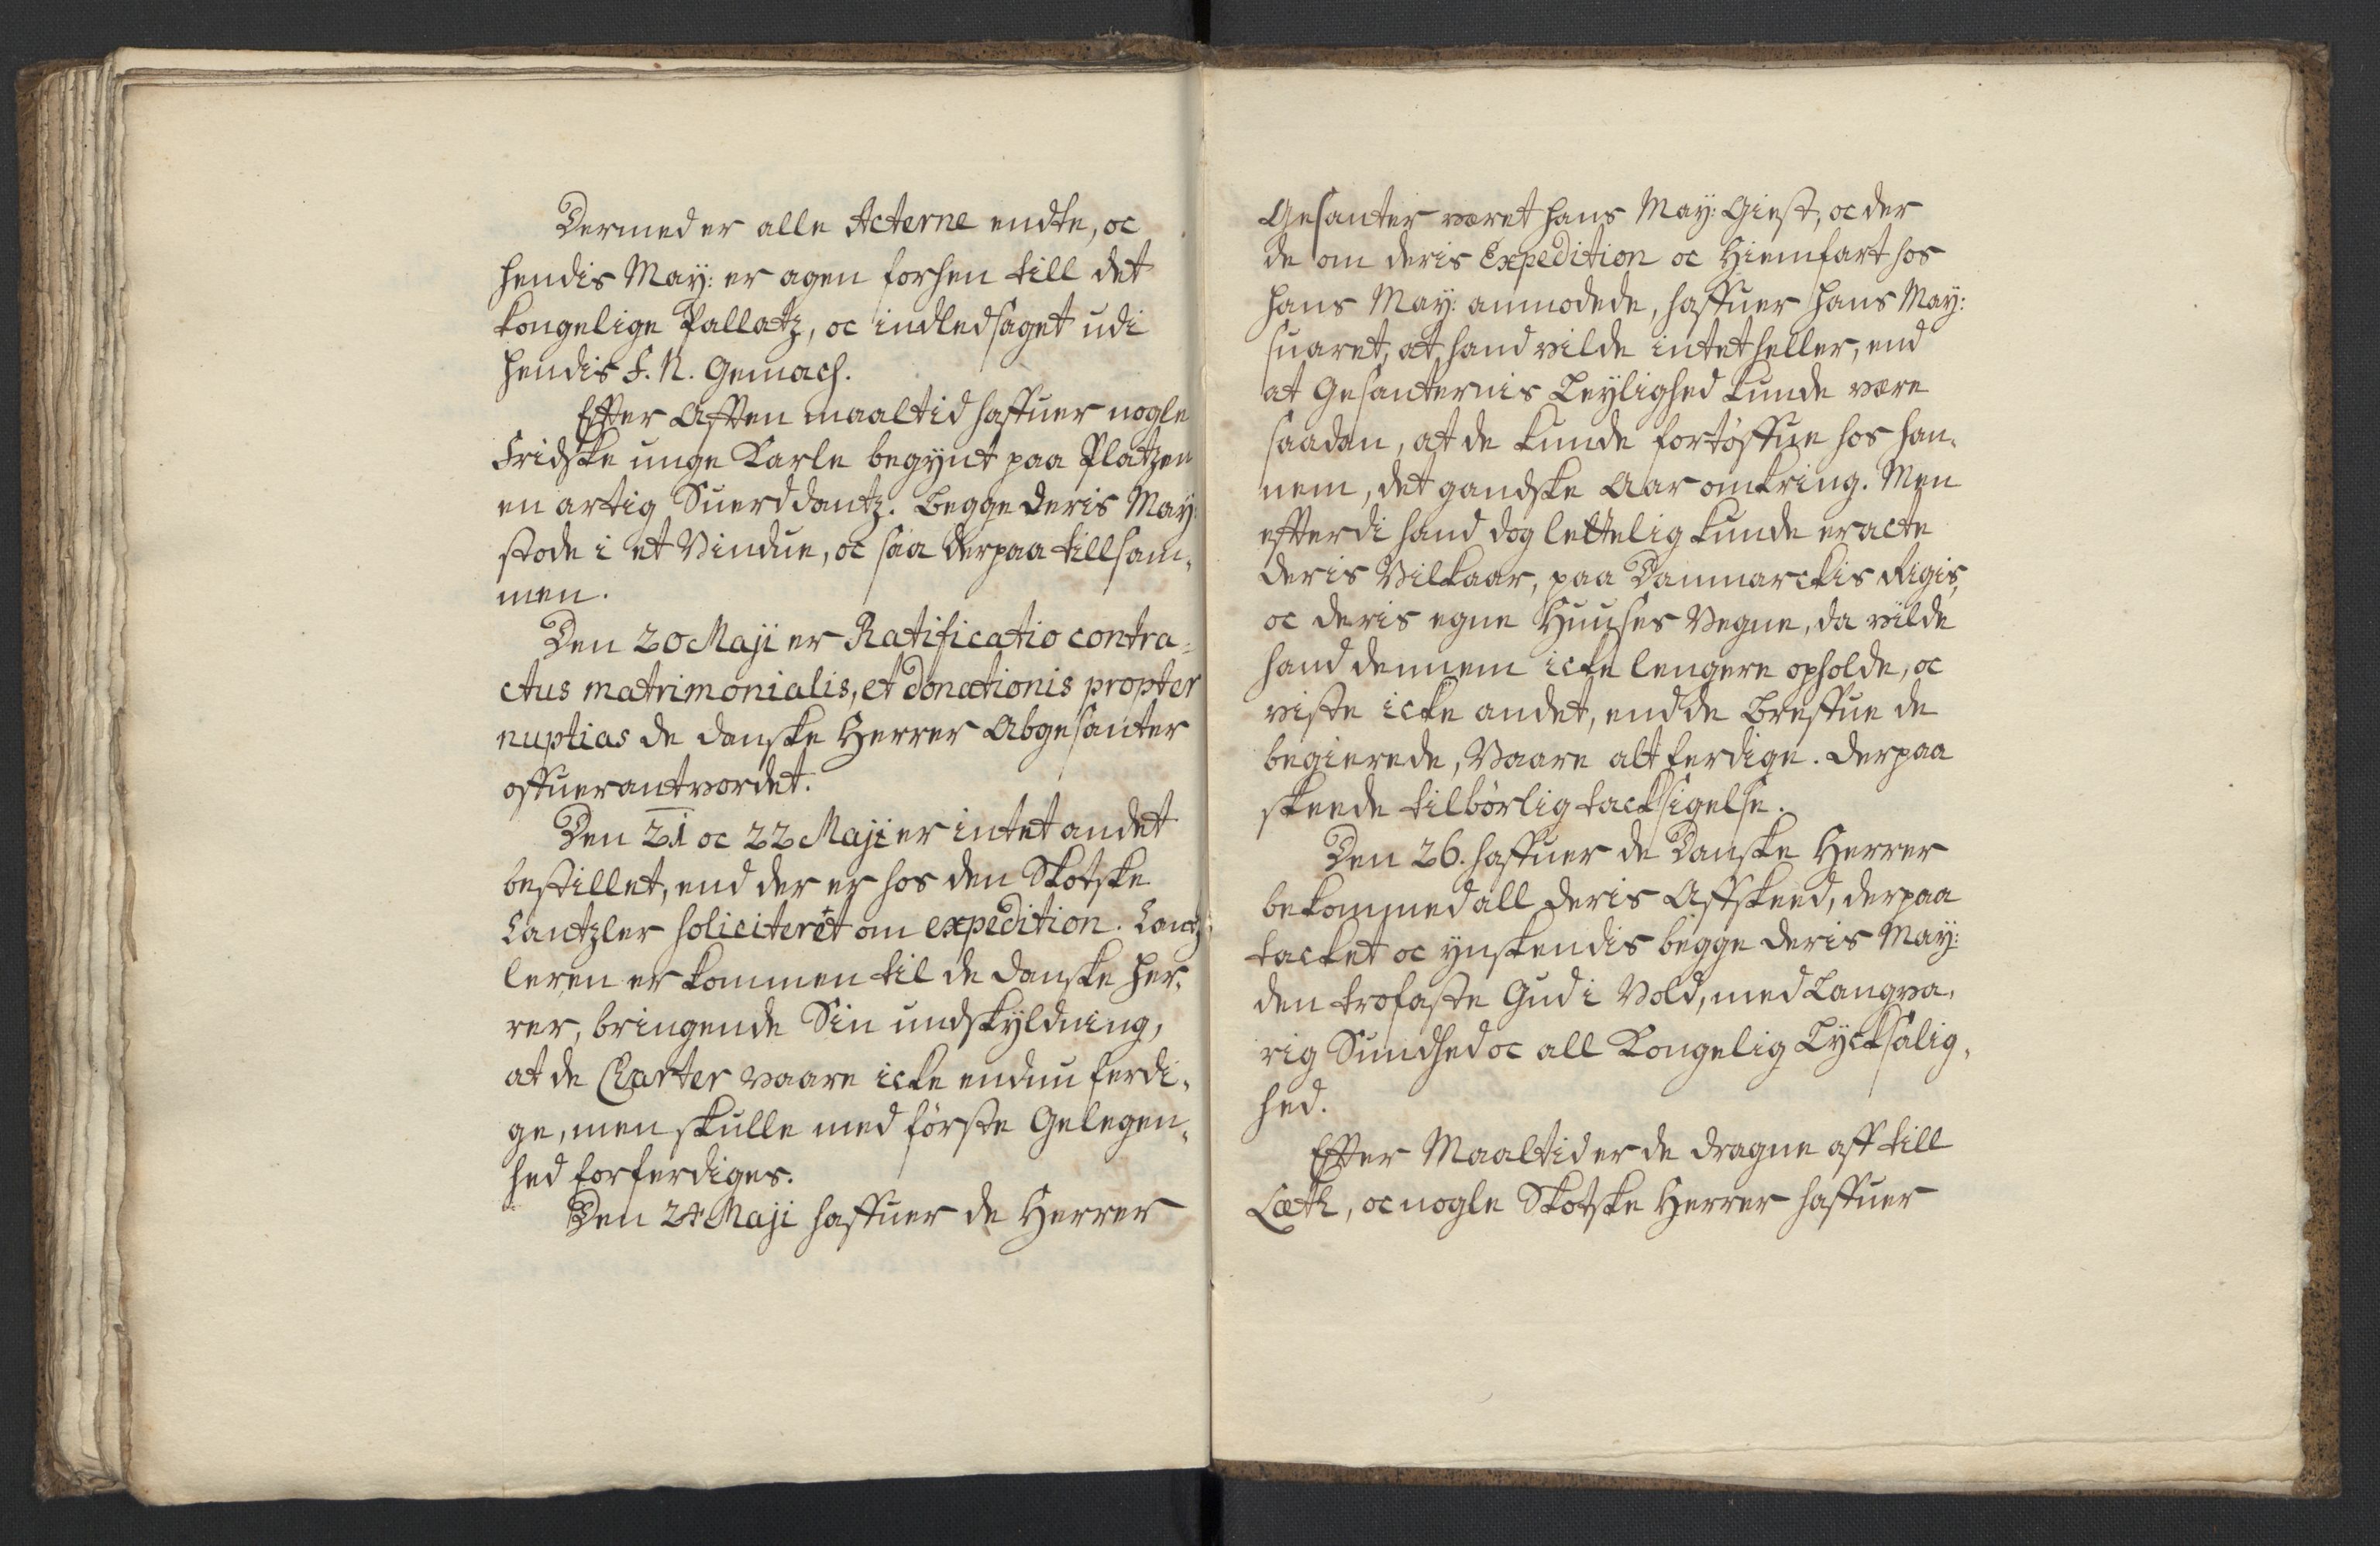 Dermed er alle Acterne endte, oc
hendis May: er agen forhen till det
kongelige Pallatz, oc indledsaget udi
hendis F. N. Gemach.
Effter Afften maaltid haffuer nogle
Fridske unge Karle begynt paa Platzen
en artig Suerddantz. Begge deris May:
stode i et Vindue, oc saa derpaa tillsam-
men.
Den 20 Maji er Ratificatio contra-
ctus matrimonialis, et donationis propter
nuptias de danske Herrer Abgesanter
offuerantvordet.
Den 21 oc 22 Maji er intet andet
bestillet, end der er hos den Skotske
Cantzler soliciteret om expedition. Cantz-
leren er kommen til de danske Her-
rer, bringende Sin undskyldning,
at de Charter vaare icke endnu ferdi-
ge, men skulle med første Gelegen-
hed forferdiges.
Den 24 Maji haffuer de Herrer
Gesanter været hans May: Giest, oc der
de om deris Expedition oc Hiemfart hos
hans May: anmodede, haffuer hans May:
suaret, at hand vilde intet heller, end
at Gesanternis Leylighed kunde være
saadan, at de kunde fortøffue hos han-
nem, det gandske Aar omkring. Men
efterdi hand dog lettelig kunde eracte
deris Vilkaar, paa Danmarckis Rigis,
oc deris egne Huuses Vegne, da vilde
hand dennem icke lengere opholde, oc
viste icke andet, end de Breffue de
begierede, Vaare alt ferdige. Derpaa
skeede tilbørlig tacksigelse.
Den 26. haffuer de Danske Herrer
bekommed all deris Affskeed, derpaa
tacket oc ynskendis begge deris May:
den trofaste Gud i Vold, med Langva-
rig Sundhed oc all Kongelig Lycksalig-
hed.
Effter Maaltid er de dragne aff till
Læth, oc nogle Skotske Herrer haffuer